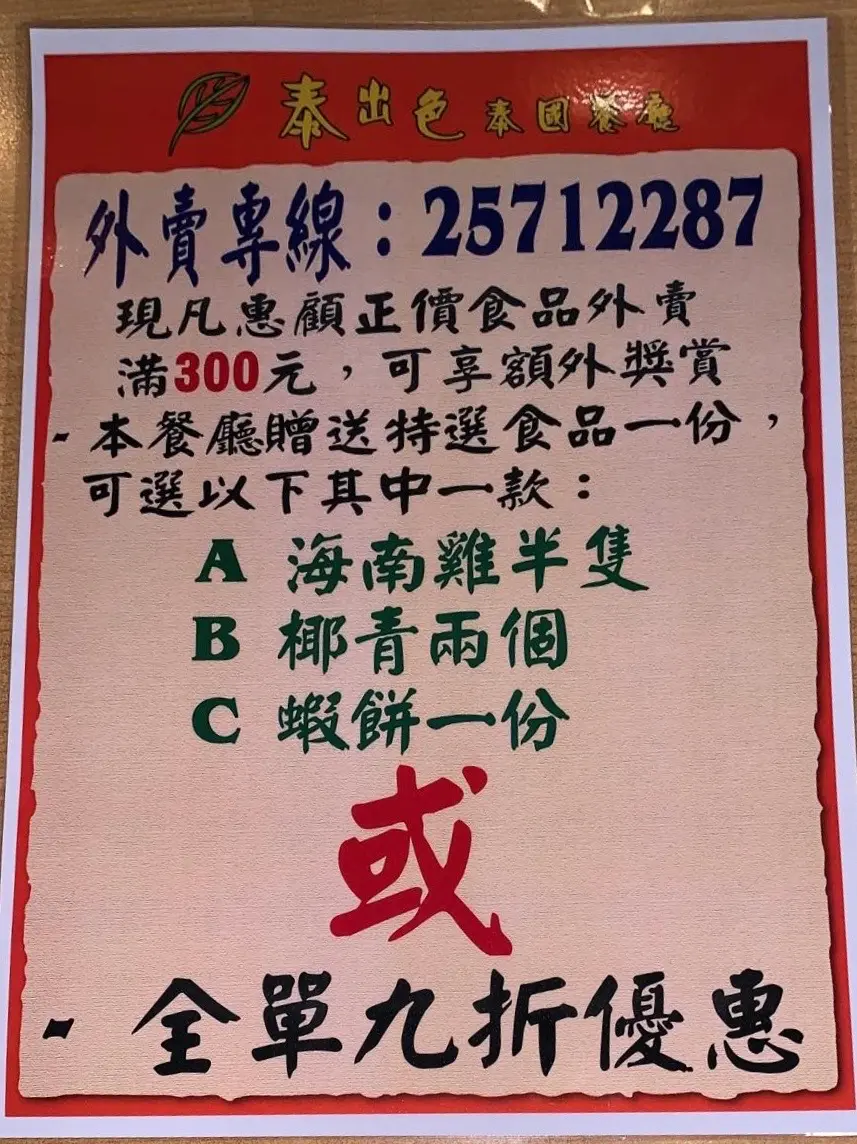 泰出色 泰國餐廳
外賣專線：25712287
現凡惠顧正價食品外賣
滿300元，可享額外獎賞
- 本餐廳贈送特選食品一份，
可選以下其中一款：
A 海南雞半隻
B 椰青兩個
C 蝦餅一份
或
- 全單九折優惠